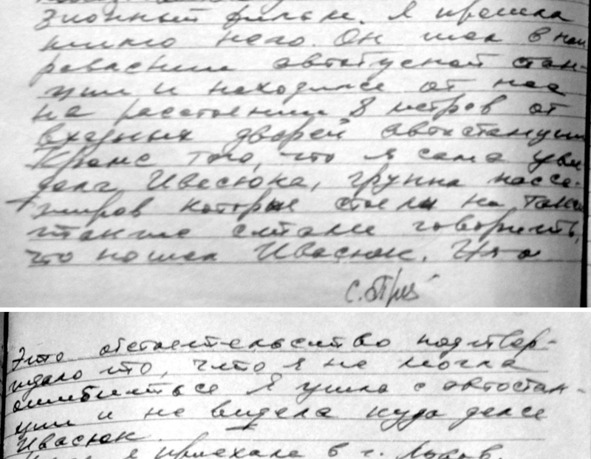 зионный фильм. Я прошла
мимо него. Он шел в нап
равлении автобусной стан-
ции и находился от нее
на расстоянии 8 метров от
входных дверей автостанции
Кроме того, что я сама уви
дела Ивасюка, группа пасса-
жиров которые стояли на такси
стали говорить,
что пошел Ивасюк. Что
Это обстоятельство подтвер-
ждало то, что я не могла
ошибиться Я ушла с автостан-
ции и не видела куда делся
Ивасюк.
я приехала в г. Львов.